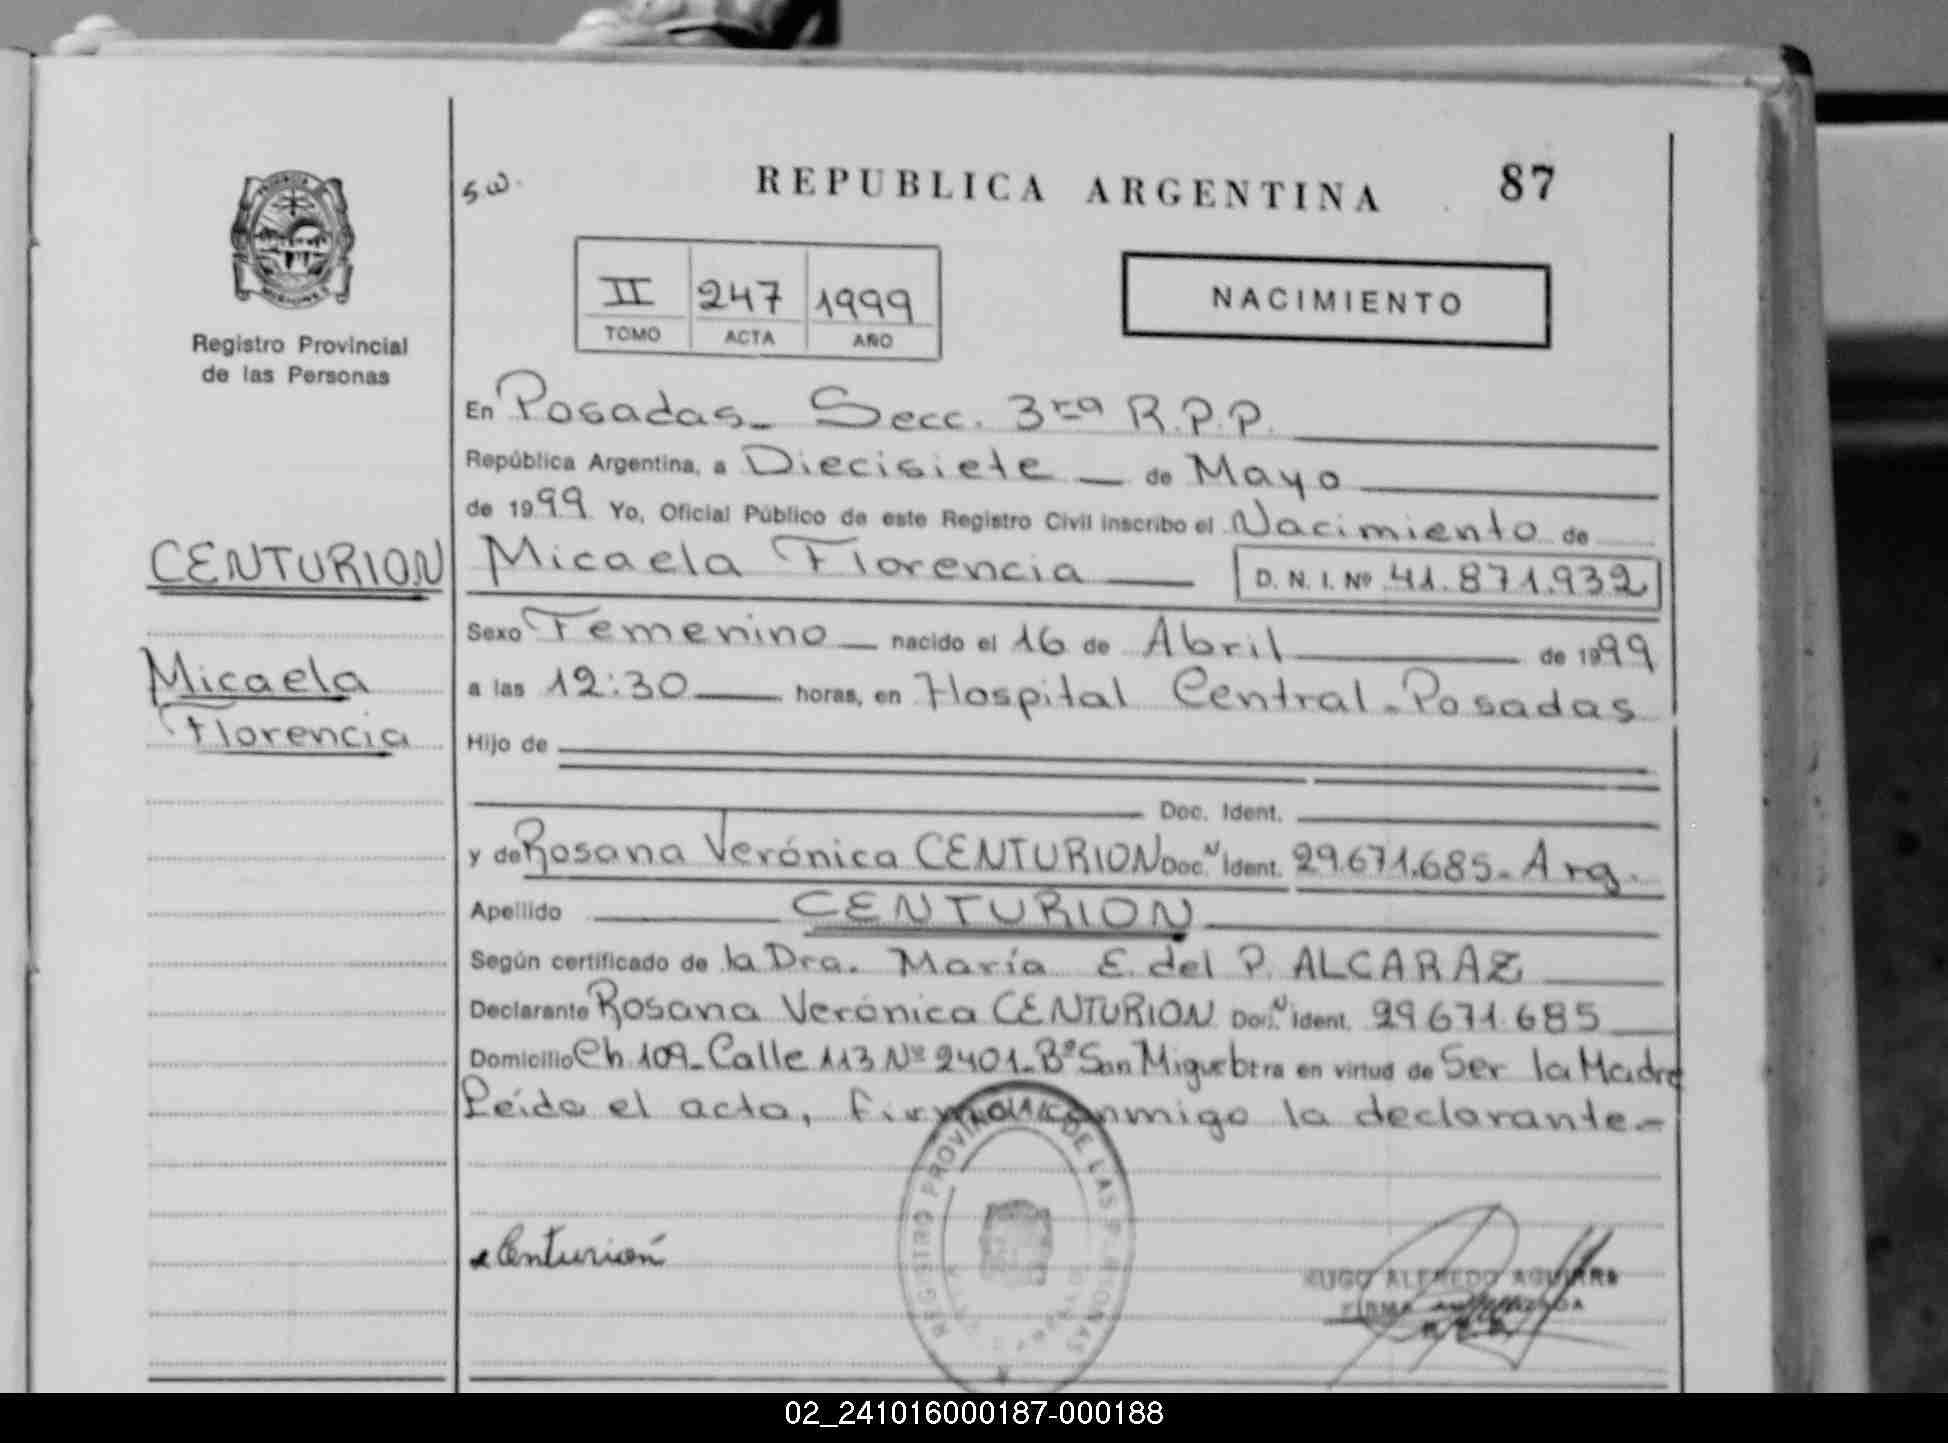 S.W.
REPUBLICA ARGENTINA 87
II 247 1999
TOMO ACTA AÑO
NACIMIENTO
Registro Provincial
de las Personas
En Posadas_ Secc. 3ra R.P.P.
República Argentina, a Diecisiete _ de Mayo
de 1999 Yo, Oficial Público de este Registro Civil inscribo el Nacimiento de
CENTURION
Micaela Florencia
D. N. I. Nº 41.871.932
Micaela
Florencia
Sexo Femenino _ nacido el 16 de Abril de 1999
a las 12:30 horas, en Hospital Central - Posadas
Hijo de
Doc. Ident.
y de Rosana Verónica CENTURION Doc. N Ident. 29.671.685 - Arg.
Apellido CENTURION
Según certificado de la Dra. María E. del P. ALCARAZ
Declarante Rosana Verónica CENTURION Doc. N Ident. 29.671.685
Domicilio Ch. 109_ Calle 113 Nº 2401_ Bº San Miguel btra en virtud de Ser la Madre
Leída el acta, firma conmigo la declarante.-
REGISTRO PROVINCIAL DE LAS PERSONAS
Centurion
HUGO ALFREDO AGUIRRE
FIRMA AUTORIZADA
02_241016000187-000188